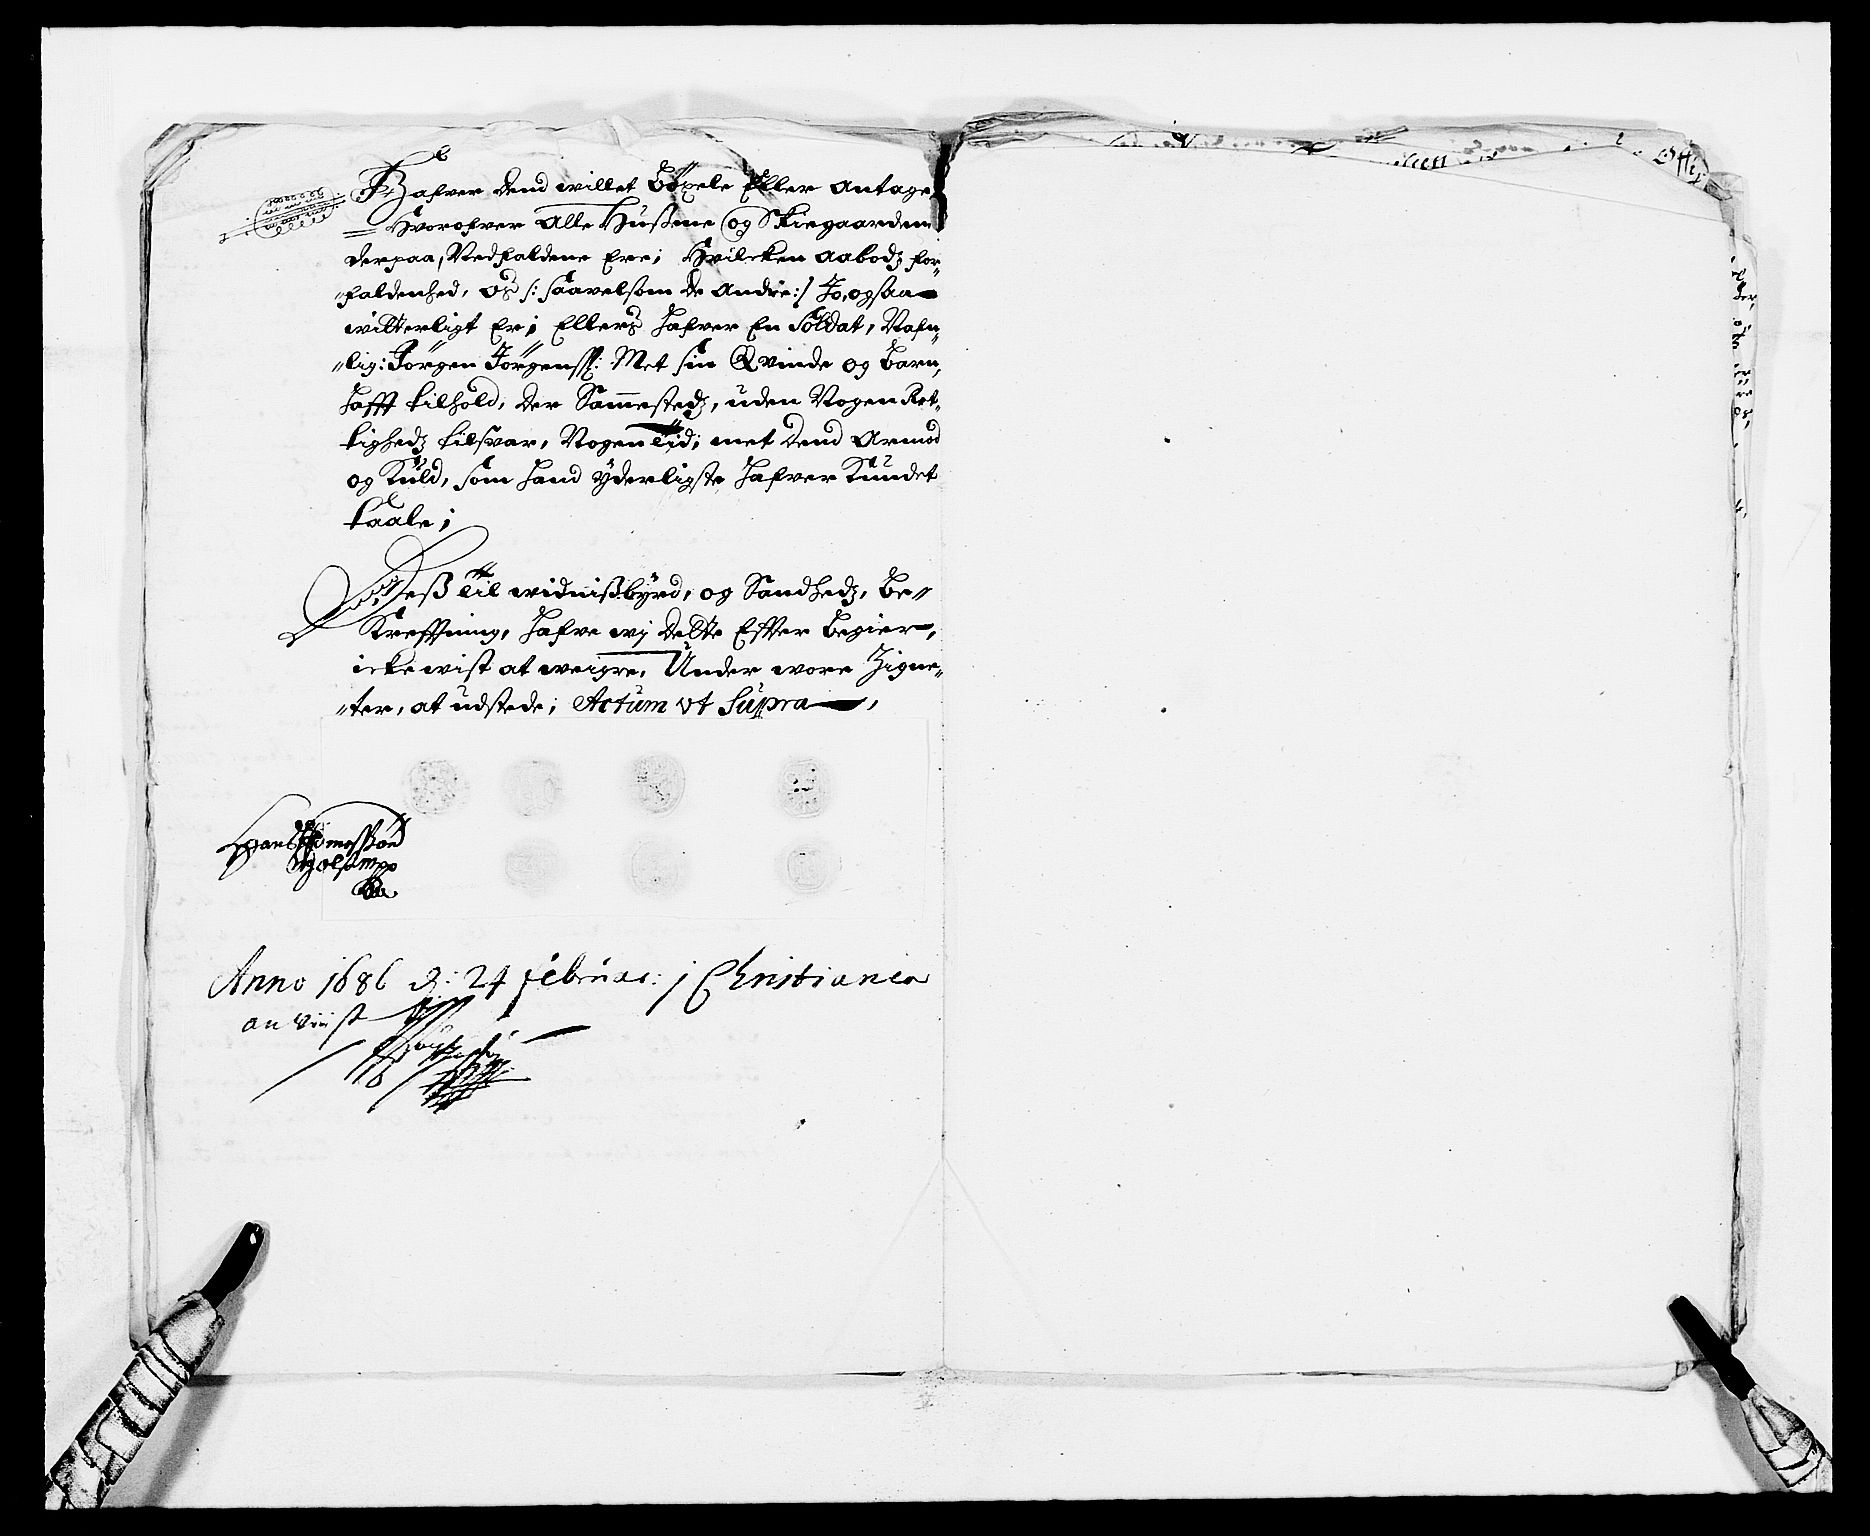 Hafver dend willet böxele Eller antage
Hvorofver alle Hussene og Skiegaardene
derpaa, Nedfaldene Ere; Hvilcken aabodz for-
faldenhed, os /: saavelsom de andre :/ Jo, ogsaa
witterligt Er; Ellers hafver En Soldat, Nafn-
lig: Jörgen Jörgenss: Met sin Qvinde og barn,
hafft tilhold, der Sammestedz, uden Nogen Ret-
tighedz tilsvar, Nogen Tid; met dend armod
og Kuld, som hand ÿderligste hafver Kundet
taale;
Dess Til widnissbÿrd, og Sandhedz, Be-
Kreffning, hafve wj dette Effter begier,
icke wist at weigre, Under wore Zigne-
ter, at udstede; Actum ut Supra
Anno 1686 d: 24 februar: j Christiania
an viist